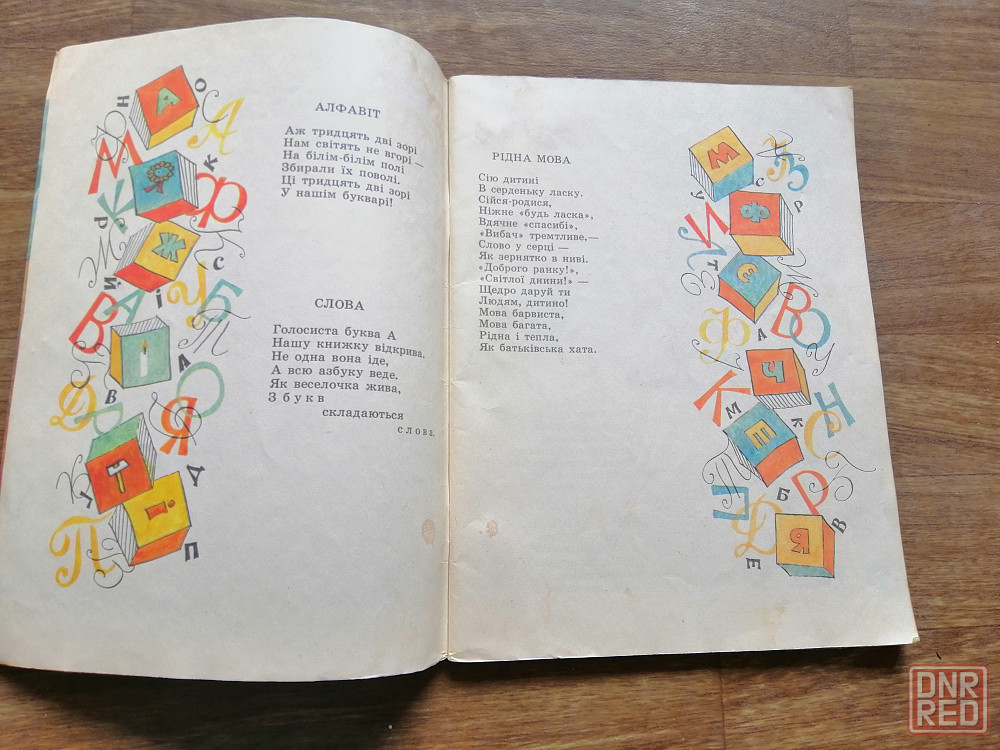 АЛФАВІТ
Аж тридцять дві зорі
Нам світять не вгорі —
На білім-білім полі
Збирали їх поволі.
Ці тридцять дві зорі
У нашім букварі!
СЛОВА
Голосиста буква А
Нашу книжку відкрива.
Не одна вона іде,
А всю азбуку веде.
Як веселочка жива,
З букв
складаються
слова.
РІДНА МОВА
Сію дитині
В серденьку ласку.
Сійся-родися,
Ніжне «будь ласка»,
Вдячне «спасибі»,
«Вибач» тремтливе,—
Слово у серці —
Як зернятко в ниві.
«Доброго ранку!»,
«Світлої днини!» —
Щедро даруй ти
Людям, дитино!
Мова барвиста,
Мова багата,
Рідна і тепла,
Як батьківська хата.
DNR
RED